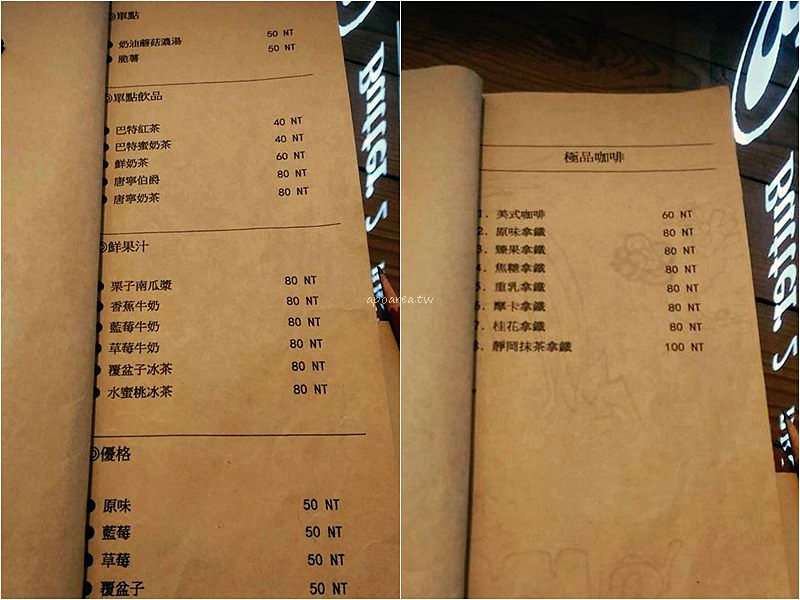 ◎單點
奶油蘑菇濃湯 50 NT
脆薯 50 NT
◎單點飲品
巴特紅茶 40 NT
巴特蜜奶茶 40 NT
鮮奶茶 60 NT
唐寧伯爵 80 NT
唐寧奶茶 80 NT
◎鮮果汁
栗子南瓜漿 80 NT
香蕉牛奶 80 NT
藍莓牛奶 80 NT
草莓牛奶 80 NT
覆盆子冰茶 80 NT
水蜜桃冰茶 80 NT
◎優格
原味 50 NT
藍莓 50 NT
草莓 50 NT
覆盆子 50 NT
極品咖啡
1. 美式咖啡 60 NT
2. 原味拿鐵 80 NT
3. 臻果拿鐵 80 NT
4. 焦糖拿鐵 80 NT
5. 重乳拿鐵 80 NT
6. 摩卡拿鐵 80 NT
7. 桂花拿鐵 80 NT
8. 靜岡抹茶拿鐵 100 NT